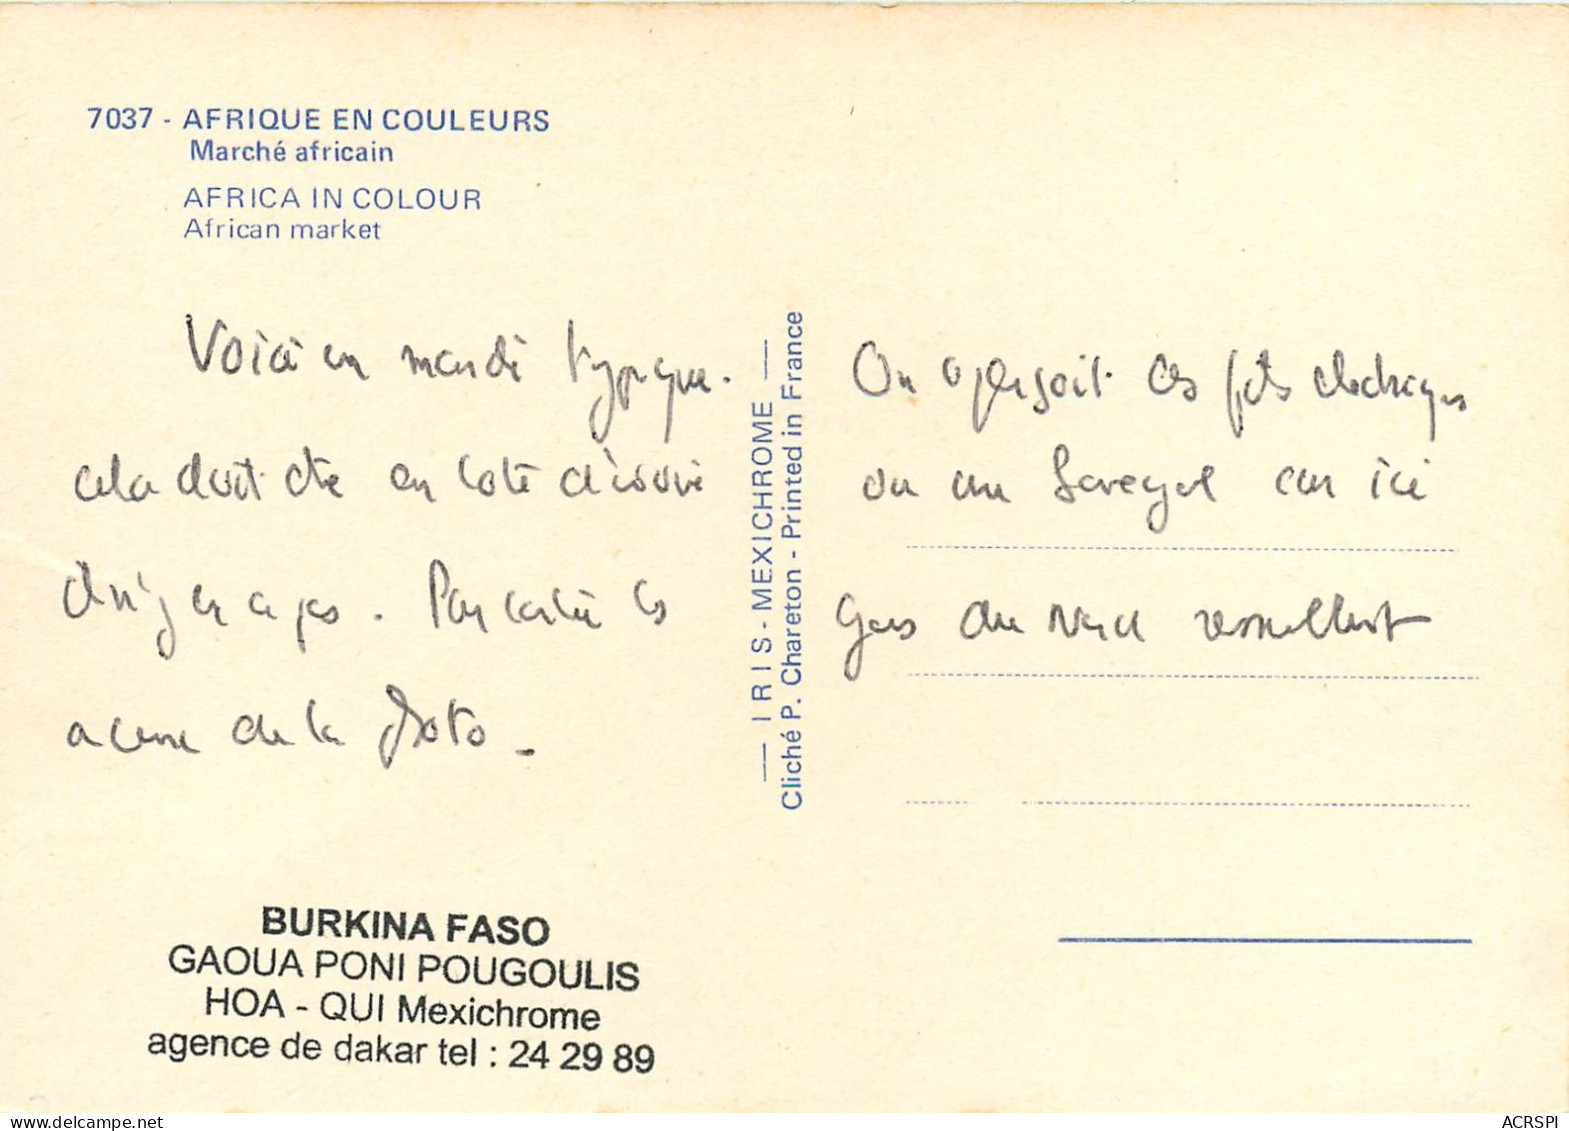 7037 - AFRIQUE EN COULEURS
Marché africain
AFRICA IN COLOUR
African market
Voici un marché typique.
cela doit être en Côte d'ivoire
Par contre les
de la photo.
— IRIS - MEXICHROME —
Cliché P. Chareton - Printed in France
On aperçoit des électriques
ou au Senegal car ici
Gens du Nord
BURKINA FASO
GAOUA PONI POUGOULIS
HOA - QUI Mexichrome
agence de dakar tel : 24 29 89
delcampe.net
ACRSPI